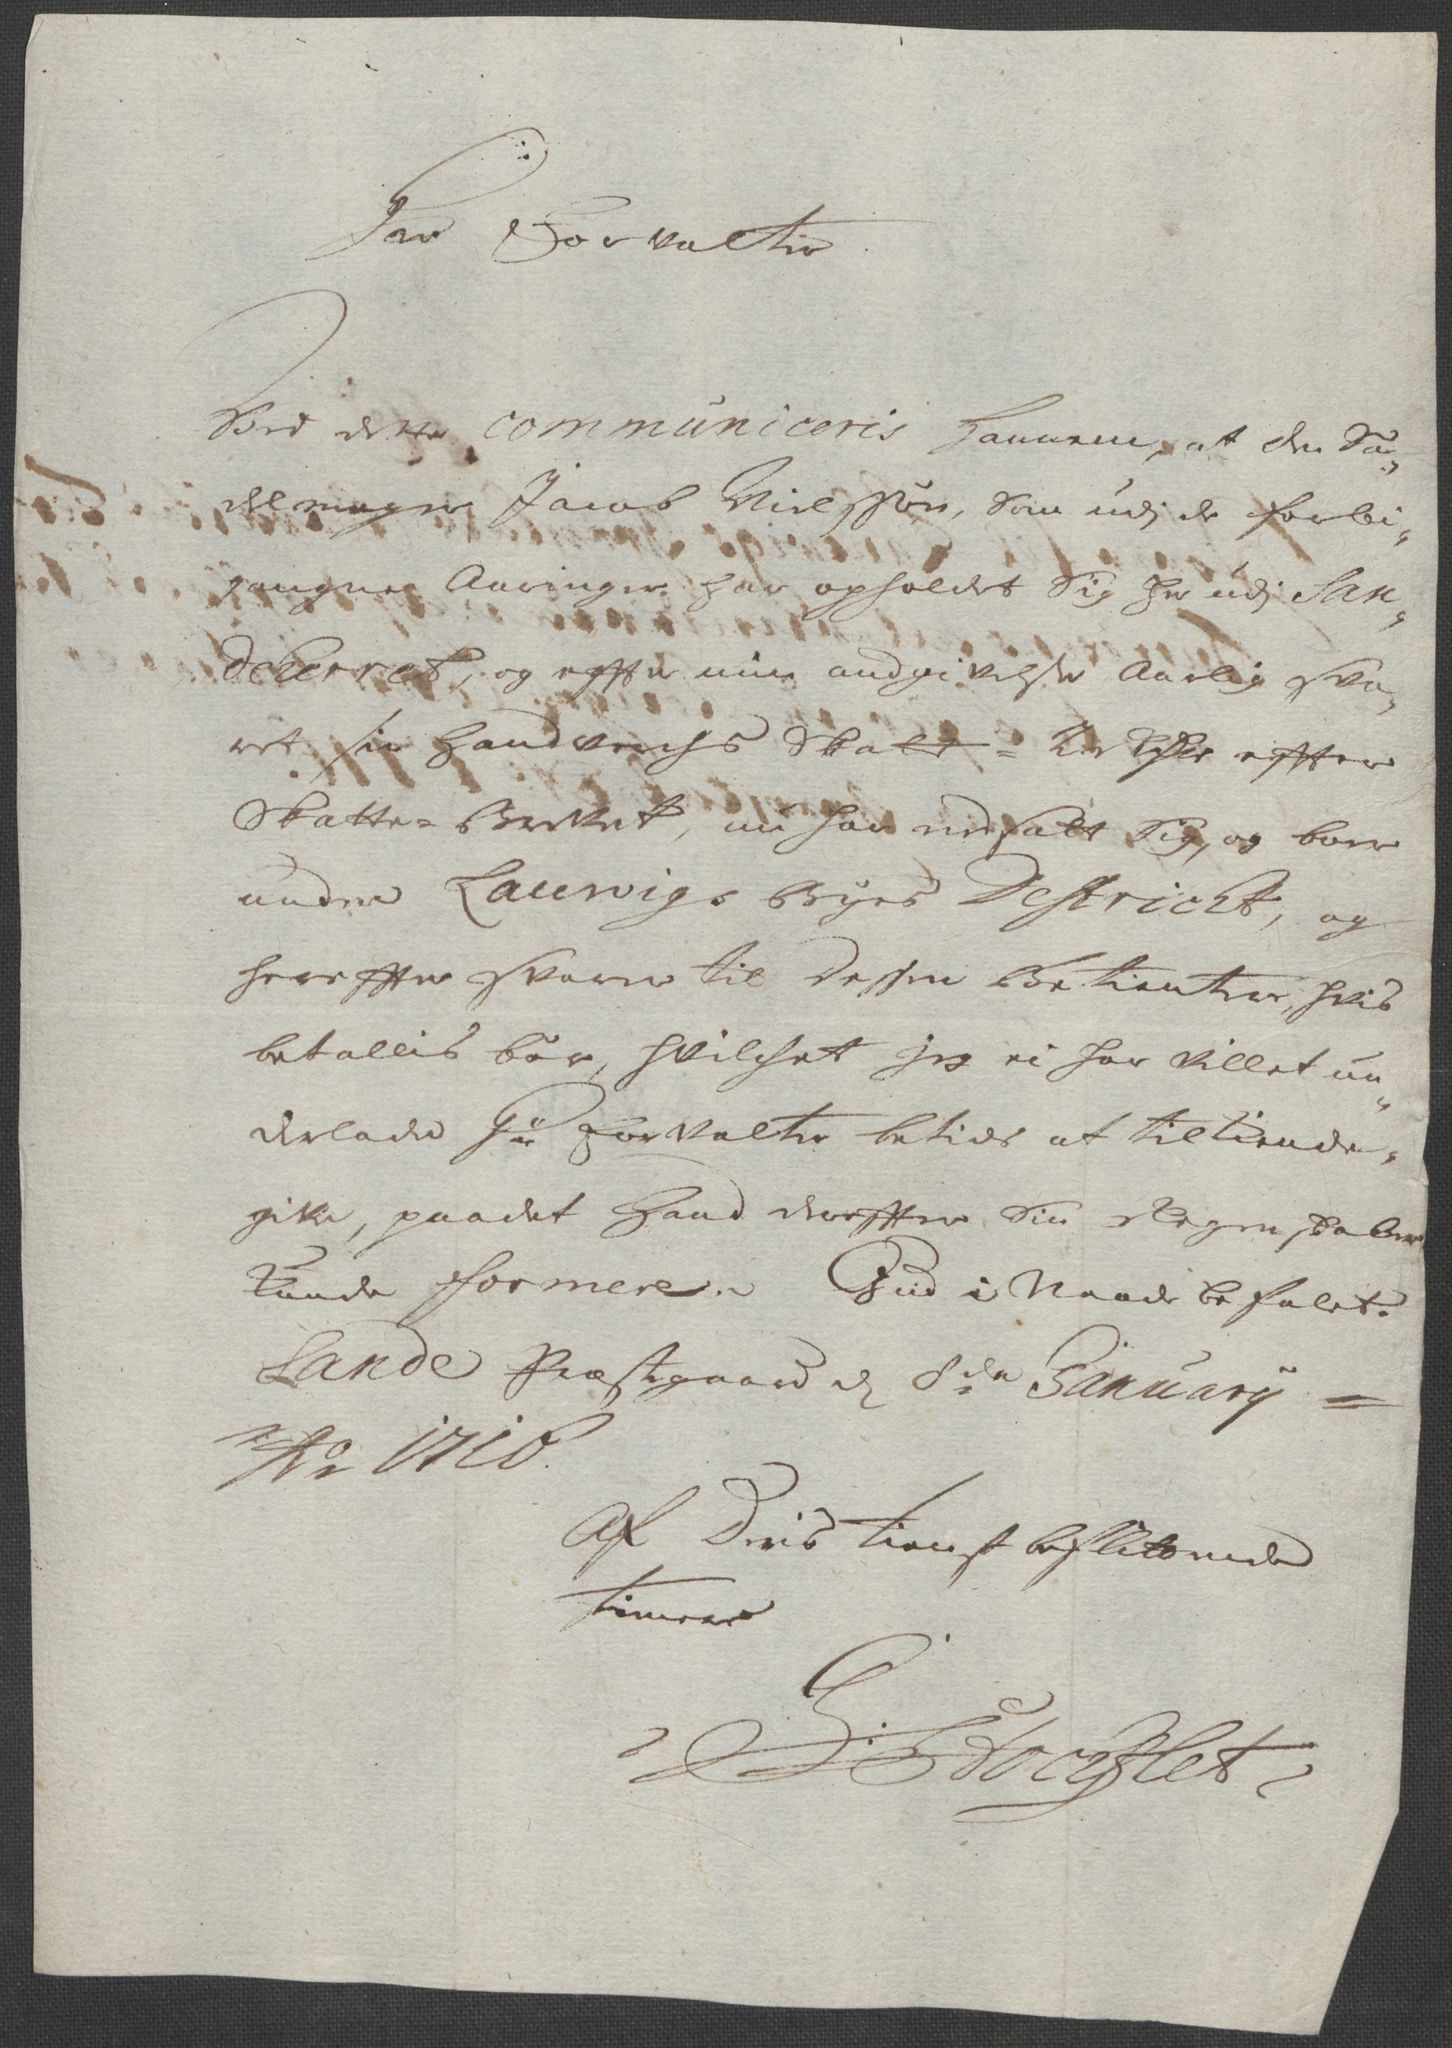 Hr Forvalter
Ved dette communiceris hannem, at den Sa-
delmager Jacob Nielssøn, som udj de forbi-
gangne Aaringer har opholdet sig her udj San-
deherret, og effter min andgivelse Aarlig sva-
ret sin Handverchs Skatt = effter
Skatte-Brevet, nu har nedsatt sig, og boer
under Laurvigs Byes Destricht, og
hereffter svarer til dessen Betienter, hvis
betallis bør, hvilchet jeg ei har villet un-
derlade Hr Forvalter betids at tilkiende-
give, paadet hand dereffter sin Regenskaber
kunde formere. Gud i Naade befalet.
Sande Præstgaard d 8de January =
Ao 1710.
Af Deris tienstbeflitende
tienere
Stochflet